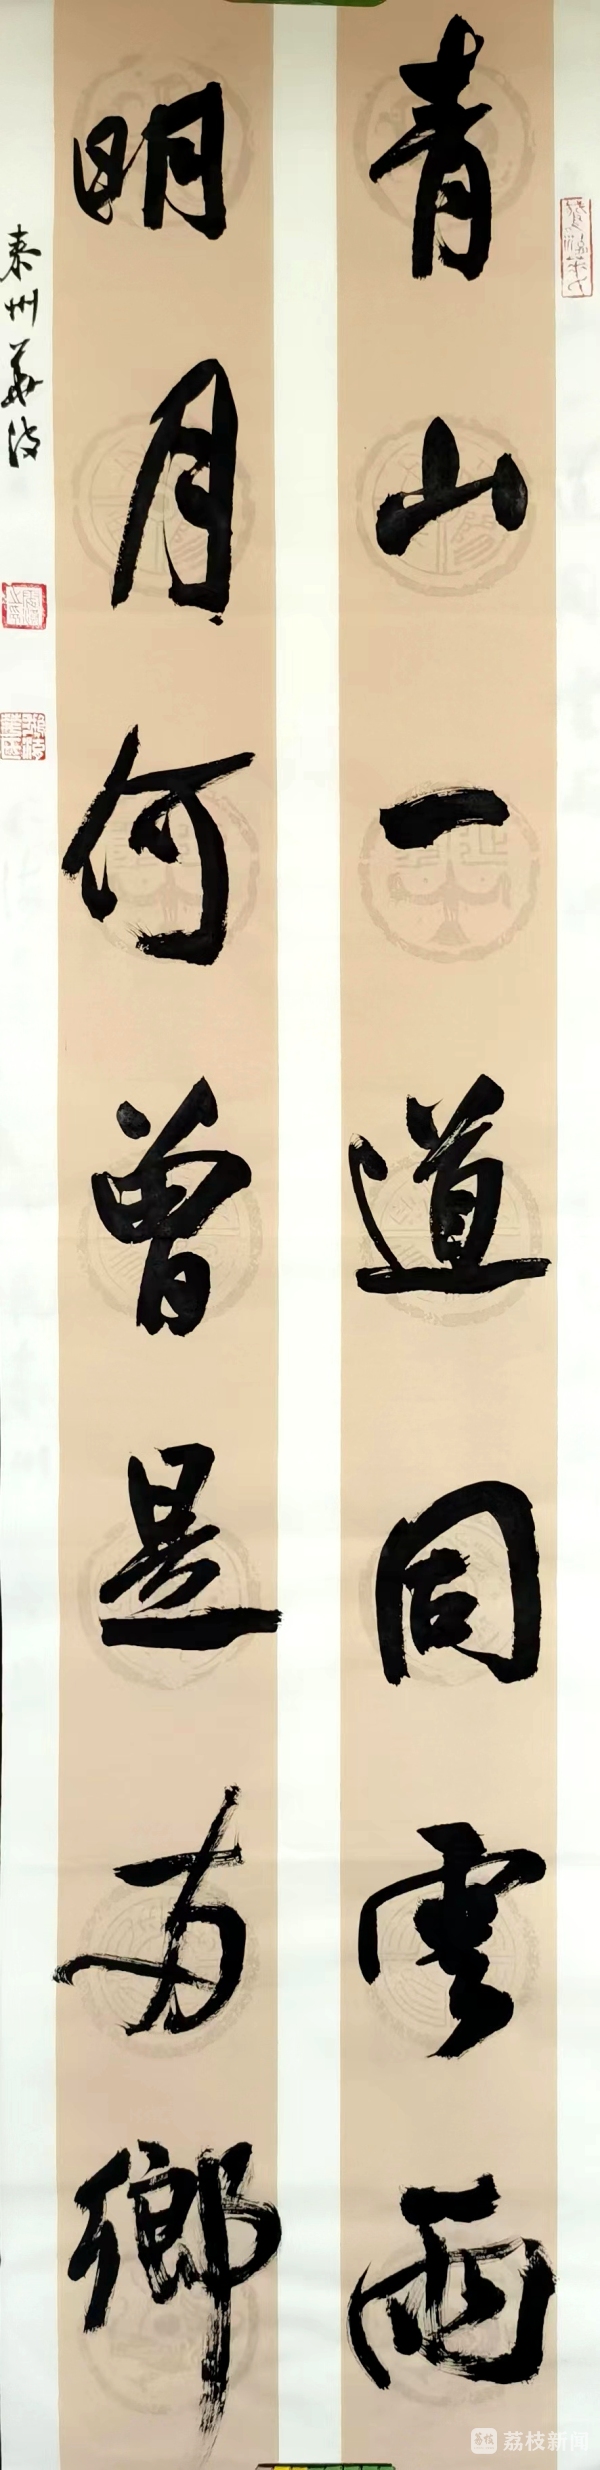 青山一道同雲雨
明月何曾是两鄉
泰州
荔枝新闻